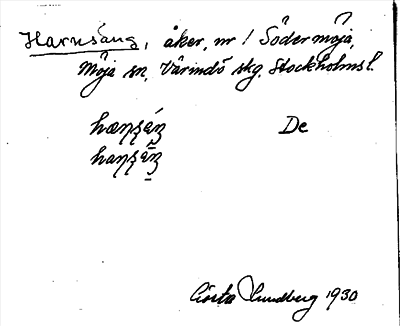 Harnsäng, åker, nr 1 Södermöja,
Möja sn, Värmdö skg. Stockholms l.
De
Gösta Lundberg 1930